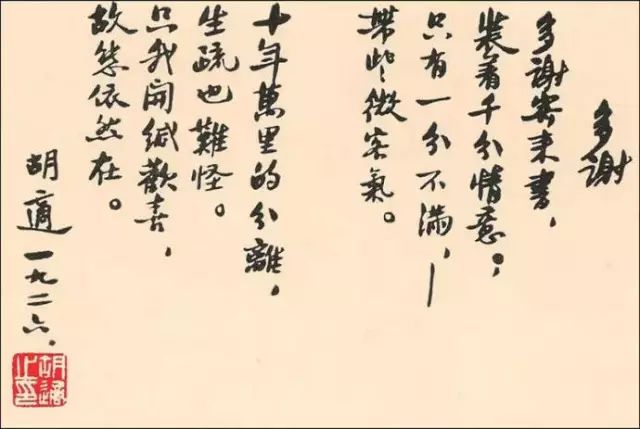 多謝
多謝寄来書，
裝着千分情意；
只有一分不滿，—
帶些微客氣。
十年萬里的分離，
生疏也難怪。
只我開緘歡喜，
故態依然在。
胡適 一九二六．
胡適之